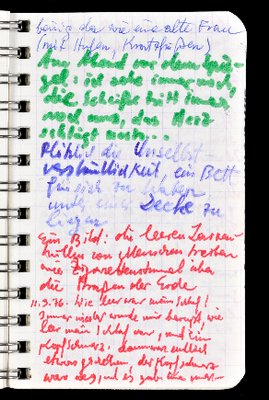 wie eine alte Frau
(mit Stufen,
Am Abend vor dem Spie-
gel: ich sehe immer noch,
die Scheiße tritt immer
noch aus, das Herz
schlägt noch...
Plötzlich die Unselbst-
verständlichkeit, ein Bett
für sich zu haben
unter einer Decke zu
liegen
Ein Bild: die leeren
hüllen von Menschen treiben
über
die Straßen der Erde
11.3.76: Wie leer war mein Schlaf!
Immer wieder wurde mir bewußt, wie
leer mein Schlaf war, und ein
Kopfschmerz. dann war endlich
etwas geschehen, der Kopfschmerz
war weg, und es